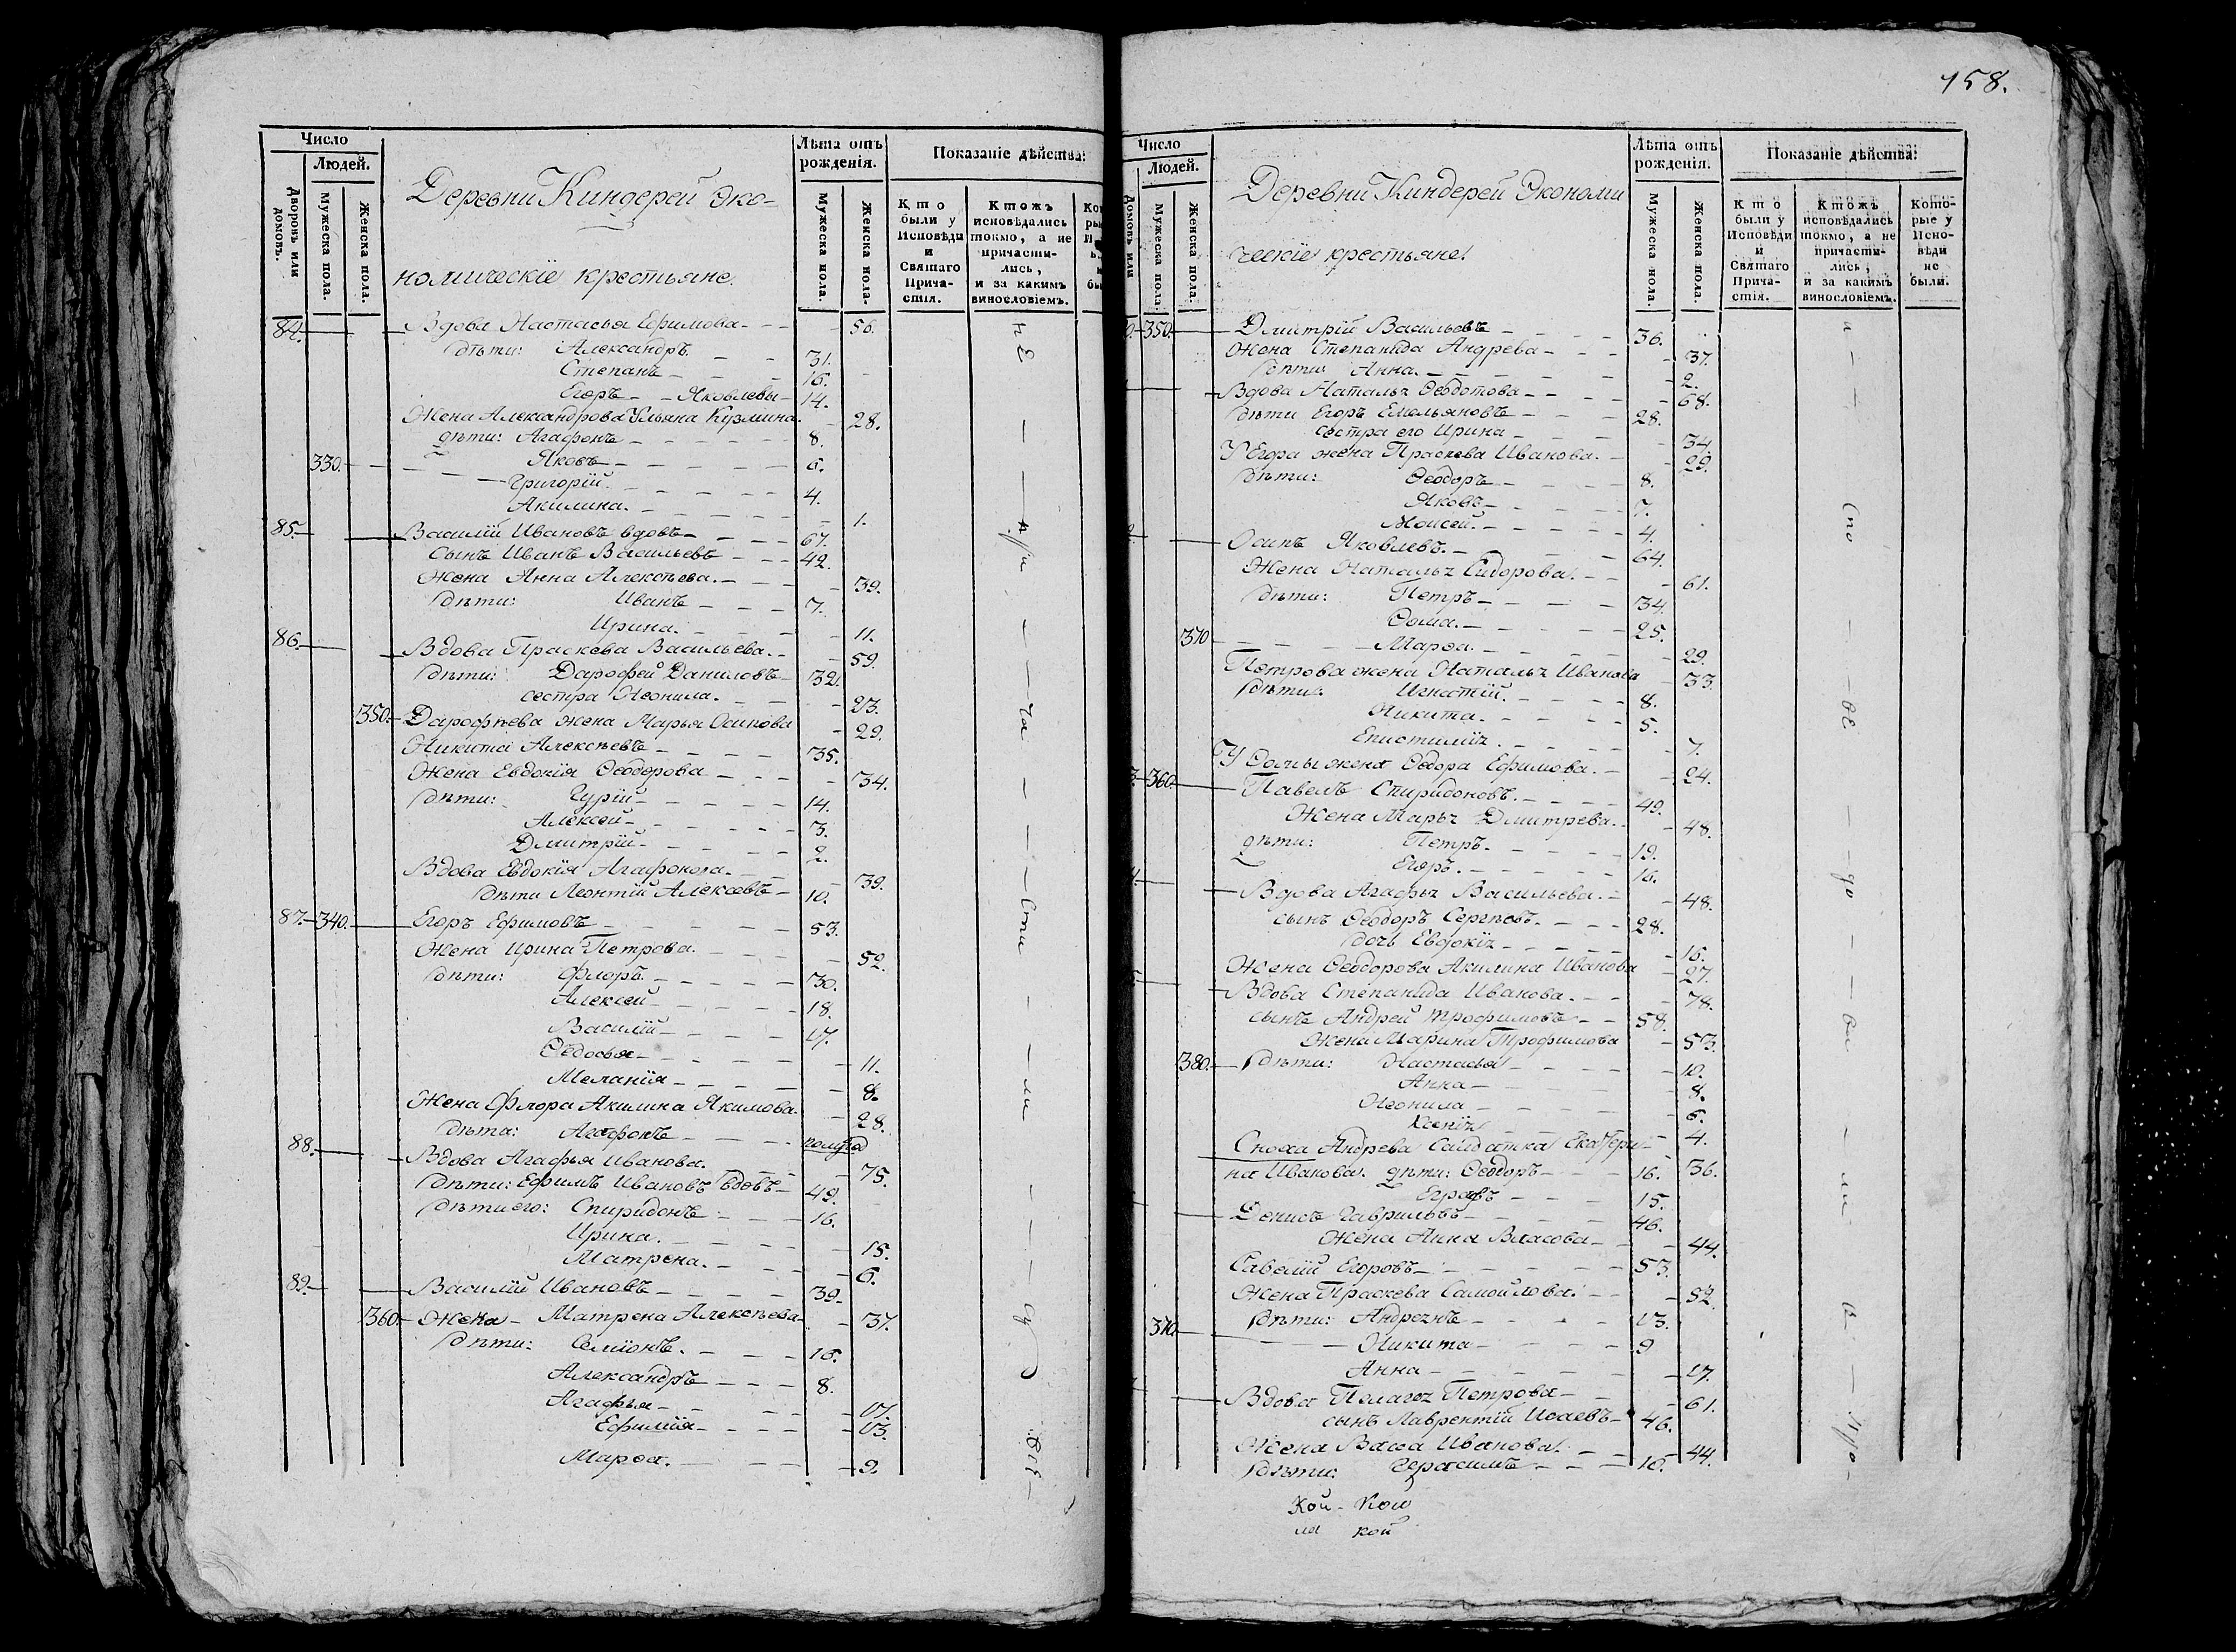 Число
Людей.
Дворовъ или домовъ.
Мужеска пола.
Женска пола.
Деревни Киндерей эко-
номическіе крестьяне.
Лѣта отъ рожденія.
Мужеска пола.
Женска пола.
Показаніе дѣйства:
Кто были у Исповѣди и Святаго Прича-стія.
Ктожъ исповѣдались токмо, а не причасти-лись, и за какимъ винословіемъ.
84. Вдова Настасья Ефимова 56.
дѣти: Александръ 31.
Степанъ 16.
Егоръ Яковлевы 14.
Жена Александрова Ульяна Кузмина. 28.
дѣти: Агафонъ 8.
330. Яковъ 6.
Григорій. 4.
Акилина. 1.
85. Василій Ивановъ вдовъ 67.
Сынъ Иванъ Васильевъ 42.
Жена Анна Алексѣева. 39.
дѣти: Иванъ 7.
Ирина. 11.
86. Вдова Праскева Васильева. 59.
дѣти: Дарофей Даниловъ 32.
сестра Неонила. 23.
350. Дарофѣева жена Марья Осипова 29.
Никита Алексѣевъ 35.
Жена Евдокія Ѳеодорова 34.
дѣти: Гурій 14.
Алексей 3.
Дмитрій 2.
Вдова Евдокія Агафонова. 39.
дѣти Леонтій Алексеевъ 10.
87. 340. Егоръ Ефимовъ 53.
Жена Ирина Петрова. 52.
дѣти: Флоръ. 30.
Алексей 18.
Василій 17.
Ѳедосья 11.
Меланія 8.
Жена Флора Акилина Якимова. 28.
дѣти: Агафонъ полгод
88. Вдова Агафья Иванова. 75.
дѣти: Ефимъ Ивановъ вдовъ 49.
дѣти его: Спиридонъ 16.
Ирина. 15.
Матрена. 6.
89. Василій Ивановъ 39.
360. Жена Матрена Алексѣева 37.
дѣти: Семіонъ. 16.
Александръ 8.
Агафья 17.
Ефимія 13.
Марѳа. 2.
158.
Число
Людей.
Домовъ или
Мужеска пола.
Женска пола.
Деревни Киндерей Экономи
ческіе крестьяне.
Лѣта отъ рожденія.
Мужеска пола.
Женска пола.
Показаніе дѣйства:
Кто были у Исповѣди и Святаго Прича-стія.
Ктожъ исповѣдались токмо, а не причасти-лись, и за какимъ винословіемъ.
Кото-рые у Испо-вѣди не были.
350. Дмитрій Васильевъ 36.
Жена Степанида Андрева 37.
дѣти Анна. 2.
Вдова Наталья Ѳеодотова 68.
дѣти Егоръ Емельяновъ 28.
сестра его Ирина 34.
У Егора жена Праскева Иванова. 29.
дѣти: Ѳеодоръ 8.
Яковъ 7.
Моисей. 4.
Осипъ Яковлевъ. 64.
Жена Наталья Сидорова. 61.
дѣти: Петръ 34.
Ѳома. 25.
370 Марѳа. 29.
Петрова жена Наталья Иванова 33.
дѣти: Игнатій. 8.
Никита. 5.
Епистимія. 7.
У Ѳомы жена Ѳедора Ефимова. 24.
360. Павелъ Спиридоновъ. 49.
Жена Марья Дмитрева. 48.
дѣти: Петръ. 19.
Егоръ. 16.
Вдова Агафья Васильева. 48.
сынъ Ѳеодоръ Сергѣевъ. 28.
дочь Евдокія 16.
Жена Ѳеодорова Акилина Иванова 27.
Вдова Степанида Иванова. 78.
сынъ Андрей Трофимовъ 58.
Жена Марина Трофимова 53.
380. дѣти: Настасья 10.
Анна 8.
Неонила 6.
Ксенія 4.
Сноха Андрева Салдатка Екатери-
на Иванова. дѣти: Ѳеодоръ 16. 36.
15.
Денисъ Гаврильевъ 46.
Жена Анна Власова 44.
Савелій Егоровъ 53.
Жена Праскева Самойлова. 52.
дѣти: Андреянъ 13.
370. Никита 9
Анна 17.
Вдова Пелагея Петрова 61.
сынъ Лаврентій Исаевъ 46.
Жена Васса Иванова. 44.
дѣти: Герасимъ 16.